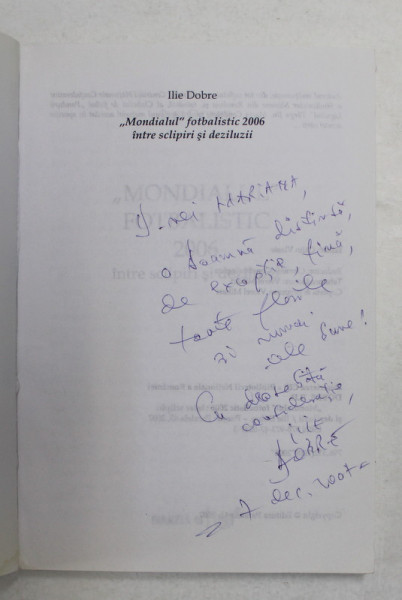 Ilie Dobre
„Mondialul” fotbalistic 2006
între sclipiri și deziluzii
D-nei MARIANA,
o doamnă distinsă,
de excepție, fină,
toate florile
și numai
ale bune!
Cu deosebită
considerație,
ILIE
DOBRE
7 dec. 2007
„MONDIALUL”
FOTBALISTIC
2006